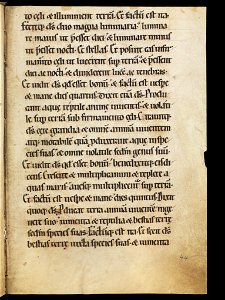 to cęli & illuminent terrā. Et factū est ita.
Fecitq; ds duo magna luminaria. lumina
re maius ut p̄esset diei. & luminare minus
ut p̄esset nocti. Et stellas. Et posuit eas in fir
mamto cęli ut lucerent sup terrā. & p̄essent
diei ac nocti. & diuiderent lucē ac tenebras.
Et uidit ds qd esset bonū. & factū est uespe
& mane dies quartus. Dixit etiā ds. Produc
ant aquę reptile animę uiuentis. & uolati
le sup terrā sub firmamento cęli. Creauitq;
ds cete grandia. & omnē animā uiuentem
atq; motabilē quā pduxerant aquę in spe
cies suas. & omne uolatile scdm genus suū.
Et uidit ds qd esset bonū. benedixitq; eis di
cens. Crescite & multiplicamini. & replete a
quas maris. auesq; multiplicent sup terrā.
Et factū est uespe & mane dies quintus. Dixit
quoq; ds. Producat terra animā uiuentē in ge
nere suo. iumenta & reptilia. & bestias terrę
scdm species suas. Factūq; est ita. Et fecit ds
bestias terrę iuxta species suas. & iumenta
44